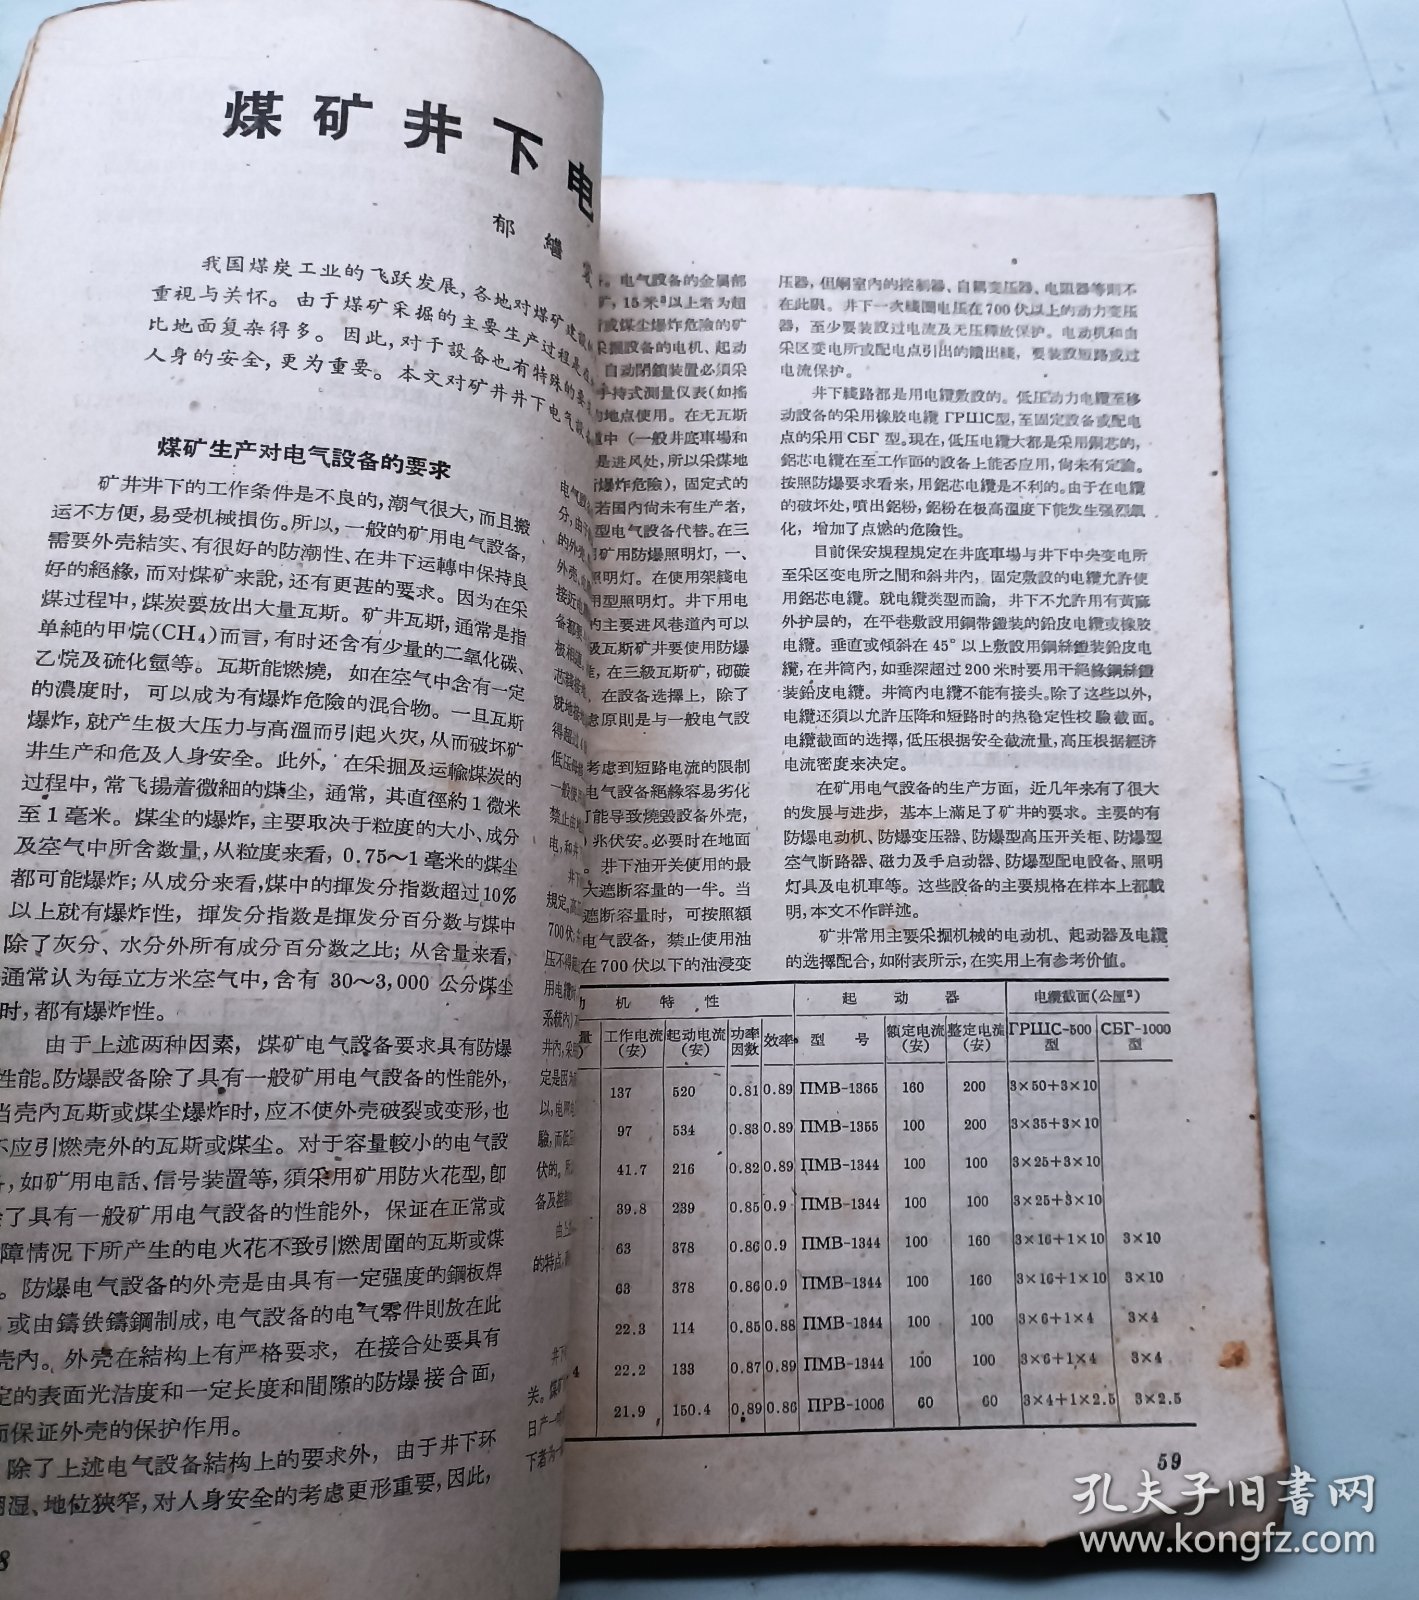 煤矿井下电
郁 繼
我国煤炭工业的飞跃发展,各地对煤矿建設
重視与关怀。由于煤矿采掘的主要生产过程是
比地面复杂得多。因此,对于設备也有特殊的要
人身的安全,更为重要。本文对矿井井下电气設
煤矿生产对电气設备的要求
矿井井下的工作条件是不良的,潮气很大,而且搬
运不方便,易受机械損伤。所以,一般的矿用电气設备,
需要外壳結实、有很好的防潮性、在井下运轉中保持良
好的絕緣,而对煤矿来說,还有更甚的要求。因为在采
煤过程中,煤炭要放出大量瓦斯。矿井瓦斯,通常是指
单純的甲烷(CH₄)而言,有时还含有少量的二氧化碳、
乙烷及硫化氫等。瓦斯能燃燒,如在空气中含有一定
的濃度时,可以成为有爆炸危險的混合物。一旦瓦斯
爆炸,就产生极大压力与高溫而引起火灾,从而破坏矿
井生产和危及人身安全。此外,在采掘及运輸煤炭的
过程中,常飞揚着微細的煤尘,通常,其直徑約1微米
至1毫米。煤尘的爆炸,主要取决于粒度的大小、成分
及空气中所含数量,从粒度来看,0.75~1毫米的煤尘
都可能爆炸;从成分来看,煤中的揮发分指数超过10%
以上就有爆炸性,揮发分指数是揮发分百分数与煤中
除了灰分、水分外所有成分百分数之比;从含量来看,
通常认为每立方米空气中,含有30~3,000公分煤尘
时,都有爆炸性。
由于上述两种因素,煤矿电气設备要求具有防爆
性能。防爆設备除了具有一般矿用电气設备的性能外,
当壳內瓦斯或煤尘爆炸时,应不使外壳破裂或变形,也
不应引燃壳外的瓦斯或煤尘。对于容量較小的电气設
,如矿用电話、信号装置等,須采用矿用防火花型,卽
了具有一般矿用电气設备的性能外,保証在正常或
障情况下所产生的电火花不致引燃周圍的瓦斯或煤
。防爆电气設备的外壳是由具有一定强度的鋼板焊
或由鑄铁鑄鋼制成,电气設备的电气零件則放在此
壳內。外壳在結构上有严格要求,在接合处要具有
定的表面光洁度和一定长度和間隙的防爆接合面,
而保証外壳的保护作用。
除了上述电气設备結构上的要求外,由于井下环
湿、地位狹窄,对人身安全的考虑更形重要,因此,
8
。电气設备的金属部
矿,15米³以上者为超
或煤尘爆炸危險的矿
采掘設备的电机、起动
自动閉鎖装置必須采
手持式測量仪表(如搖
地点使用。在无瓦斯
中(一般井底車場和
是进风处,所以采煤地
爆炸危險),固定式的
若国內尙未有生产者,
型电气設备代替。在三
矿用防爆照明灯,一、
照明灯。在使用架綫电
用型照明灯。井下用电
的主要进风巷道內可以
級瓦斯矿井要使用防爆
,在三級瓦斯矿,砌碳
在設备选擇上,除了
虑原則是与一般电气設
考虑到短路电流的限制
电气設备絕緣容易劣化
能导致燒毀設备外壳,
兆伏安。必要时在地面
井下油开关使用的最
大遮断容量的一半。当
遮断容量时,可按照額
电气設备,禁止使用油
在700伏以下的油浸变
压器,但峒室內的控制器、自耦变压器、电阻器等則不
在此限。井下一次綫圈电压在700伏以上的动力变压
器,至少要装設过电流及无压釋放保护。电动机和由
采区变电所或配电点引出的饋出綫,要装設短路或过
电流保护。
井下綫路都是用电纜敷設的。低压动力电纜至移
动設备的采用橡胶电纜ГРШС型,至固定設备或配电
点的采用СБГ型。現在,低压电纜大都是采用銅芯的,
鋁芯电纜在至工作面的設备上能否应用,尙未有定論。
按照防爆要求看来,用鋁芯电纜是不利的。由于在电纜
的破坏处,噴出鋁粉,鋁粉在极高溫度下能发生强烈氧
化,增加了点燃的危險性。
目前保安規程規定在井底車場与井下中央变电所
至采区变电所之間和斜井內,固定敷設的电纜允許使
用鋁芯电纜。就电纜类型而論,井下不允許用有黃麻
外护层的,在平巷敷設用鋼带鎧装的鉛皮电纜或橡胶
电纜。垂直或傾斜在45°以上敷設用鋼絲鎧装鉛皮电
纜,在井筒內,如垂深超过200米时要用干絕緣鋼絲鎧
装鉛皮电纜。井筒內电纜不能有接头。除了这些以外,
电纜还須以允許压降和短路时的热稳定性校驗截面。
电纜截面的选擇,低压根据安全載流量,高压根据經济
电流密度来决定。
在矿用电气設备的生产方面,近几年来有了很大
的发展与进步,基本上滿足了矿井的要求。主要的有
防爆电动机、防爆变压器、防爆型高压开关柜、防爆型
空气断路器、磁力及手启动器、防爆型配电設备、照明
灯具及电机車等。这些設备的主要規格在样本上都載
明,本文不作詳述。
矿井常用主要采掘机械的电动机、起动器及电纜
的选擇配合,如附表所示,在实用上有参考价值。
机 特 性 起 动 器 电纜截面(公厘²)
工作电流(安) 起动电流(安) 功率因数 效率 型 号 額定电流(安) 整定电流(安) ГРШС-500型 СБГ-1000型
137 520 0.81 0.89 ПМВ-1365 160 200 3×50+3×10
97 534 0.83 0.89 ПМВ-1355 100 200 3×35+3×10
41.7 216 0.82 0.89 ПМВ-1344 100 100 3×25+3×10
39.8 239 0.85 0.9 ПМВ-1344 100 100 3×25+3×10
63 378 0.86 0.9 ПМВ-1344 100 160 3×16+1×10 3×10
63 378 0.86 0.9 ПМВ-1344 100 160 3×16+1×10 3×10
22.3 114 0.85 0.88 ПМВ-1344 100 100 3×6+1×4 3×4
22.2 133 0.87 0.89 ПМВ-1344 100 100 3×6+1×4 3×4
21.9 150.4 0.89 0.86 ПРВ-1006 60 60 3×4+1×2.5 3×2.5
59
孔夫子旧書网
www.kongfz.com